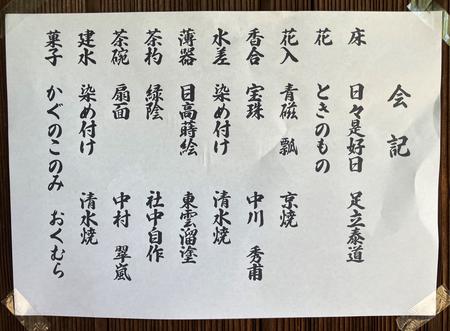 会記
床 日々是好日 足立泰道
花 ときのもの
花入 青磁 瓢 京焼
香合 宝珠 中川 秀甫
水差 染め付け 清水焼
薄器 日高蒔絵 東雲溜塗
茶杓 緑陰 社中自作
茶碗 扇面 中村 翠嵐
建水 染め付け 清水焼
菓子 かぐのこのみ おくむら